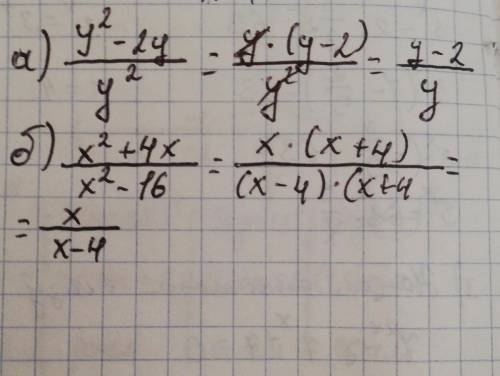 а) (y² - 2y)/y² = (y · (y - 2))/y² = (y - 2)/y
б) (x² + 4x)/(x² - 16) = (x · (x + 4))/((x - 4) · (x + 4 =
= x/(x - 4)